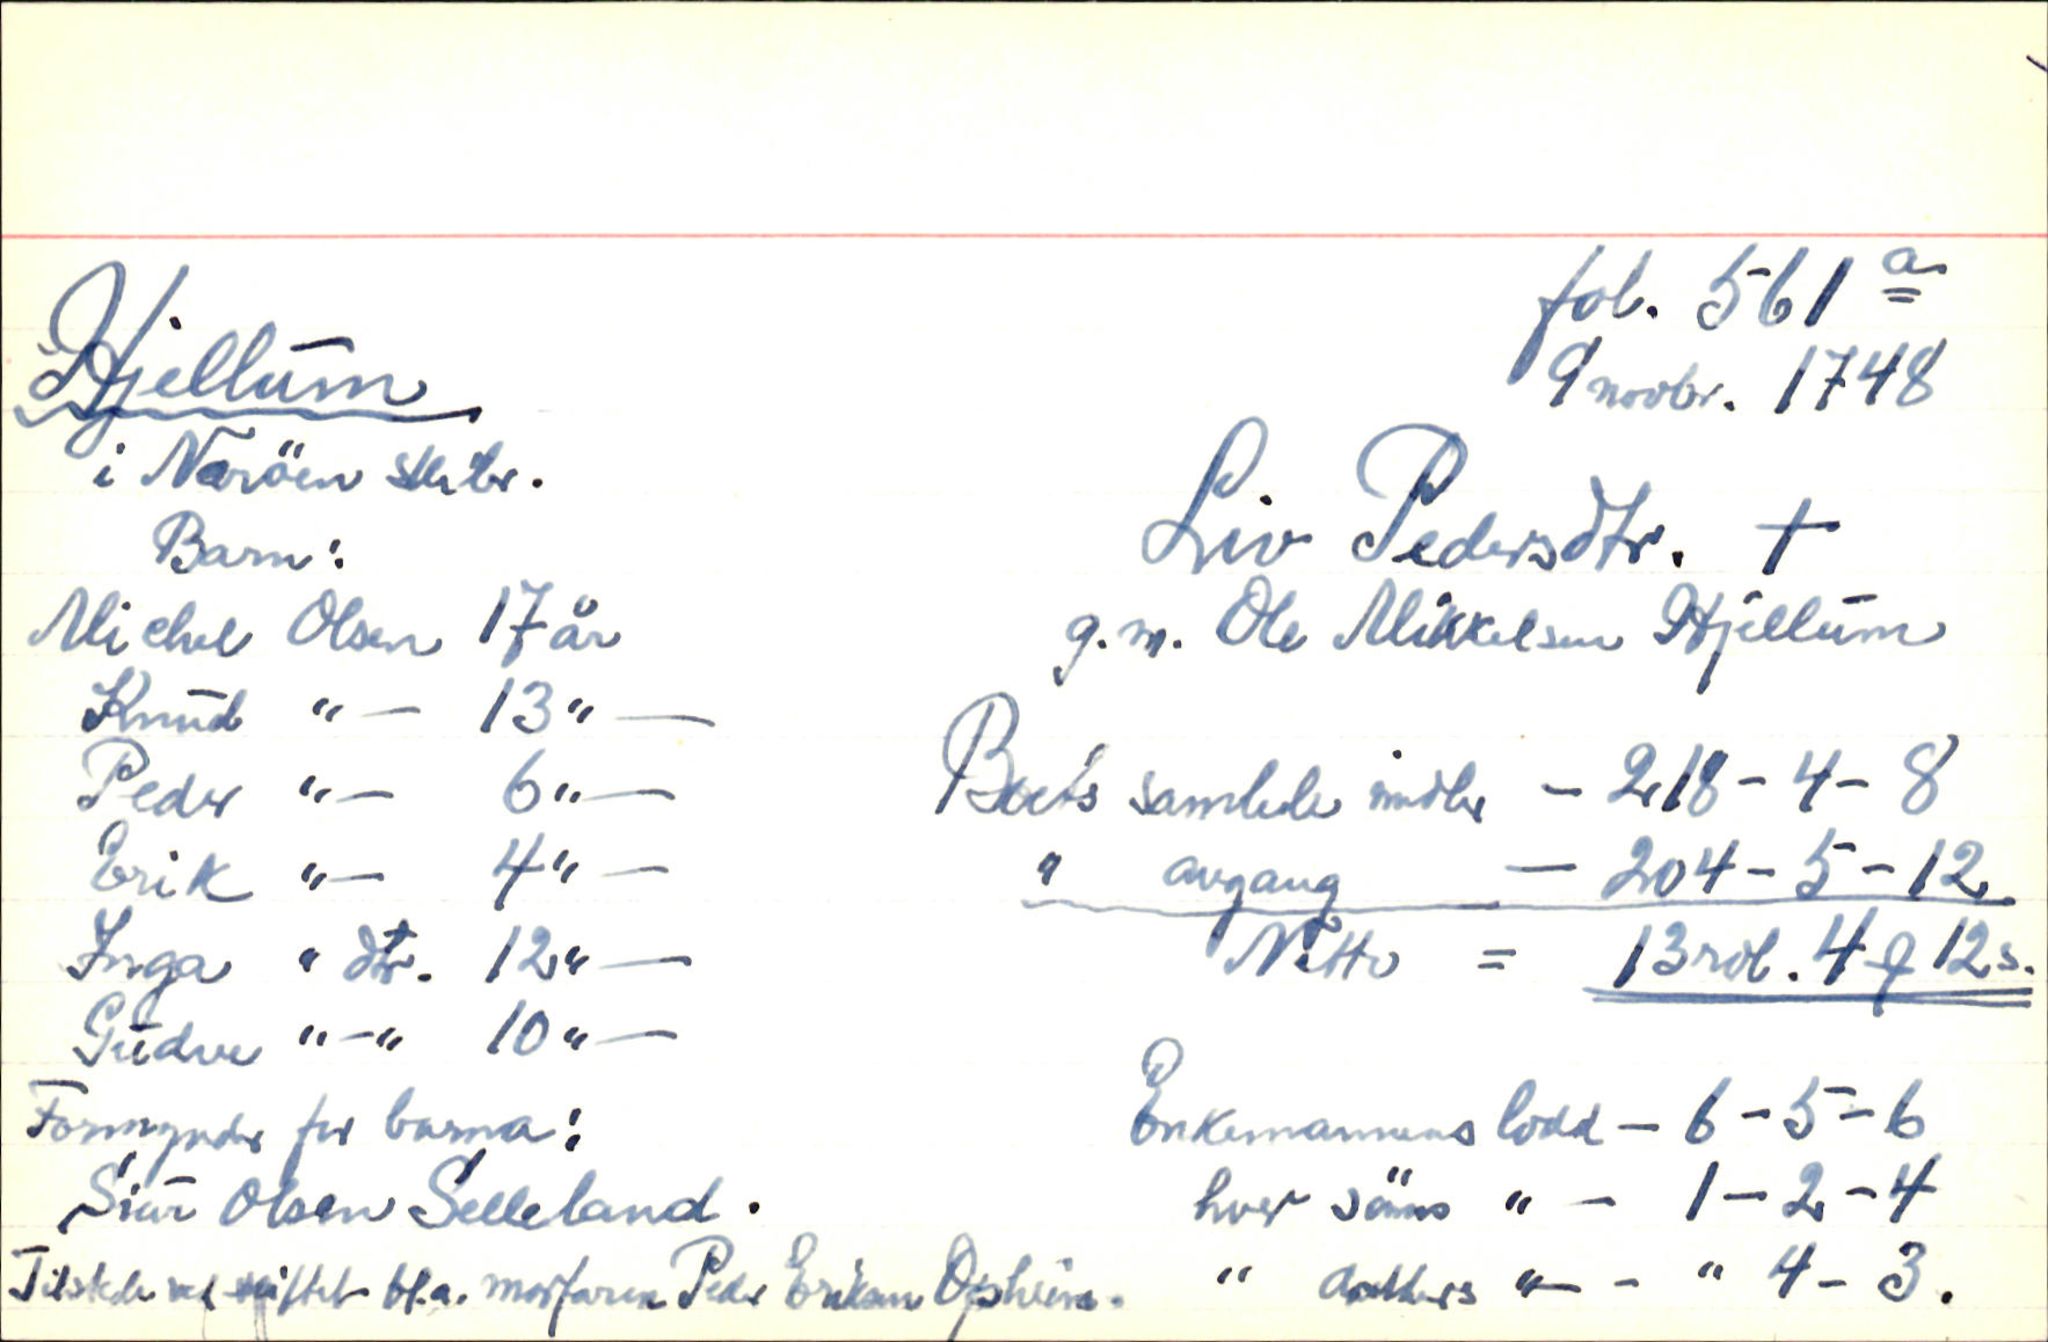 fol. 561 a
9 novbr. 1748
Hjellum
i Næröen skibr.
Liv Pedersdtr. †
g.m. Ole Mikkelsen Hjellum
Barn:
Michel Olsen 17 år
Knud "— 13 " —
Peder "— 6 " —
Erik "— 4 " —
Inga " dtr. 12 " —
Gudve "—" 10 " —
Formynder for barna:
Siur Olsen Selleland.
Tilstede ved skiftet bl.a. morfaren Peder Eriksen Opheim.
Boets samlede midler — 218 - 4 - 8
" avgang — 204 - 5 - 12
Netto = 13 rdl. 4 ƒ 12 s.
Enkemannens lodd — 6 - 5 - 6
hver søns " — 1 - 2 - 4
" datters "— - " 4 - 3.